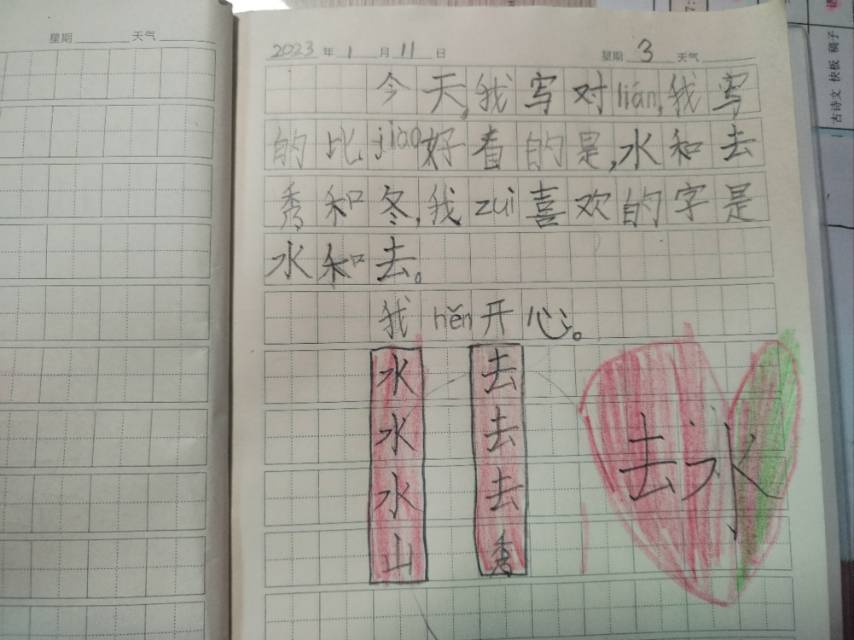 星期 天气
2023年1月11日 星期3天气
今天,我写对lián,我写
的比jiào好看的是,水和去
秀和冬,我zuì喜欢的字是
水和去。
我hěn开心。
水 去
水 去 去水
水 去
山 秀
古诗文 快板 稿子